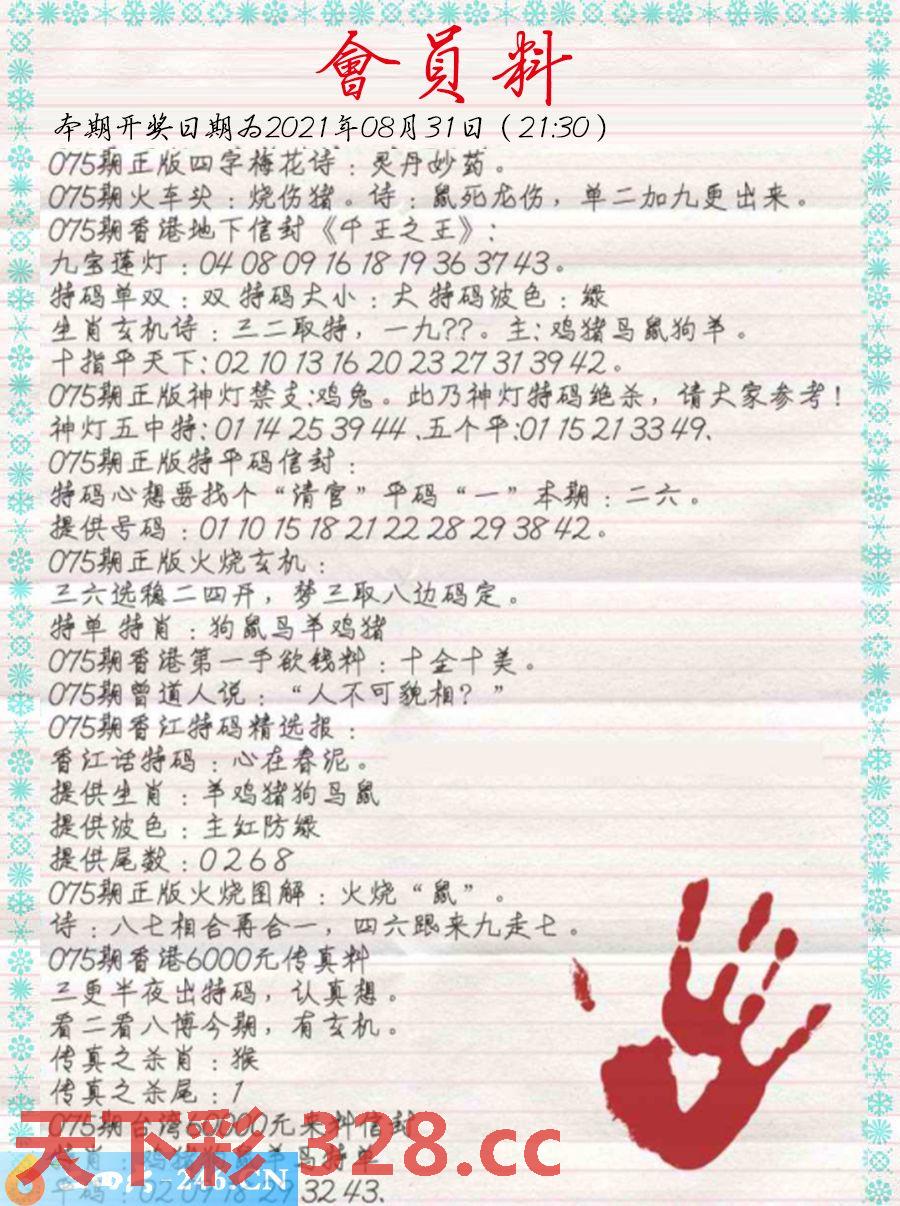 會員料
本期开奖日期为2021年08月31日（21:30）
075期正版四字梅花诗：灵丹妙药。
075期火车头：烧伤猪。诗：鼠死龙伤，单二加九更出来。
075期香港地下信封《千王之王》：
九宝莲灯：04 08 09 16 18 19 36 37 43。
特码单双：双 特码大小：大 特码波色：绿
生肖玄机诗：三二取特，一九??。主:鸡猪马鼠狗羊。
十指平天下:02 10 13 16 20 23 27 31 39 42。
075期正版神灯禁支:鸡兔。此乃神灯特码绝杀，请大家参考！
神灯五中特:01 14 25 39 44、五个平:01 15 21 33 49、
075期正版特平码信封：
特码心想要找个“清官”平码“一”本期：二六。
提供号码：01 10 15 18 21 22 28 29 38 42。
075期正版火烧玄机：
三六选稳二四开，梦三取八边码定。
特单 特肖：狗鼠马羊鸡猪
075期香港第一手欲钱料：十全十美。
075期曾道人说：“人不可貌相？”
075期香江特码精选报：
香江话特码：心在春泥。
提供生肖：羊鸡猪狗马鼠
提供波色：主红防绿
提供尾数：0 2 6 8
075期正版火烧图解：火烧“鼠”。
诗：八七相合再合一，四六跟来九走七。
075期香港6000元传真料
三更半夜出特码，认真想。
看二看八博今期，有玄机。
传真之杀肖：猴
传真之杀尾：1
075期台湾60000元来料信封
天下彩 328.cc
马特单
-246.CN
32 43、